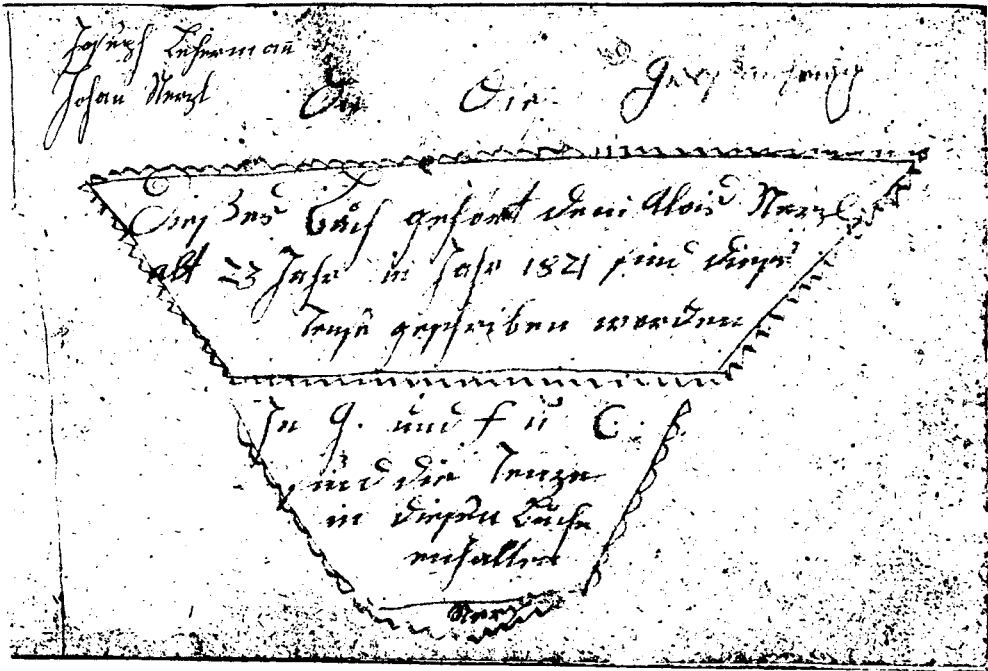 Joseph Lehermañ
Johan Nerzl
Die
Dießes Buch gehört dem Alois Nerzl
alt 23 Jahr in Jahr 1821 sind diese
Tenze geschriben worden
In G. und f u C.
und die Tenze
in diesen Buche
enhalten
Nerzl